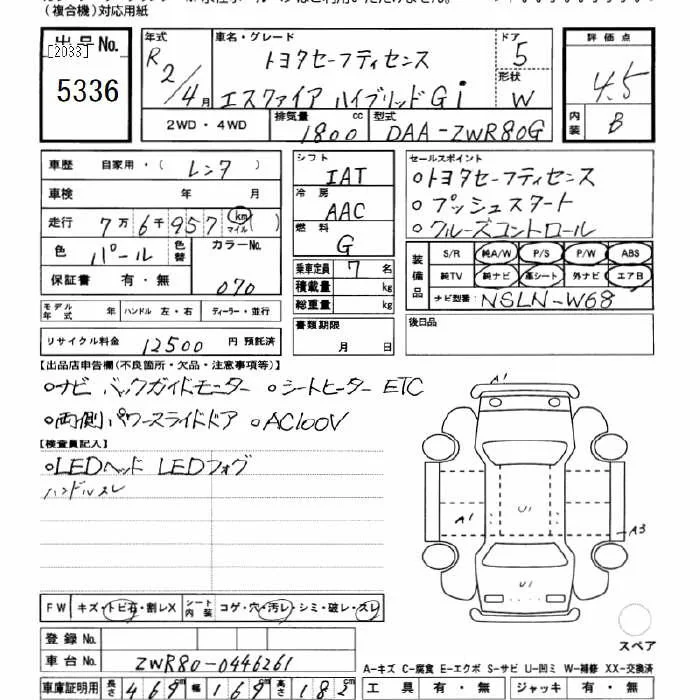 (複合機)対応用紙
出品No.
[2033]
5336
年式
R 2/4月
車名・グレード
トヨタセーフティセンス
エスクァイア ハイブリッドGi
ドア
5
形状
W
評価点
4.5
内装
B
2WD・4WD
排気量
1800 cc
型式
DAA-ZWR80G
車歴 自家用・( レンタ )
車検 年 月
走行 7万6千957 km マイル ( )
色 パール 色替 カラーNo.
070
保証書 有・無
モデル年式 年 ハンドル 左・右 ディーラー・並行
リサイクル料金 12500 円 預託済
シフト
IAT
冷房
AAC
燃料
G
乗車定員 7 名
積載量 kg
総重量 kg
書類期限
月 日
セールスポイント
○トヨタセーフティセンス
○プッシュスタート
○クルーズコントロール
装備品
S/R 純A/W P/S P/W ABS
純TV 純ナビ 革シート 外ナビ エアB
ナビ型番: NSLN-W68
後日品
【出品店申告欄(不良箇所・欠品・注意事項等)】
○ナビ バックガイドモニター ○シートヒーター ETC
○両側パワースライドドア ○AC100V
【検査員記入】
○LEDヘッド LEDフォグ
ハンドルスレ
A1
U1
A1
A3
U1
スペア
FW キズ・トビ石・割レX シート内装 コゲ・穴・汚レ・シミ・破レ・スレ
登録No.
車台No. ZWR80-0446261
車庫証明用 長さ 469cm 幅 169cm 高さ 182cm
A-キズ C-腐食 E-エクボ S-サビ U-凹ミ W-補修 XX-交換済
工具 有・無 ジャッキ 有・無